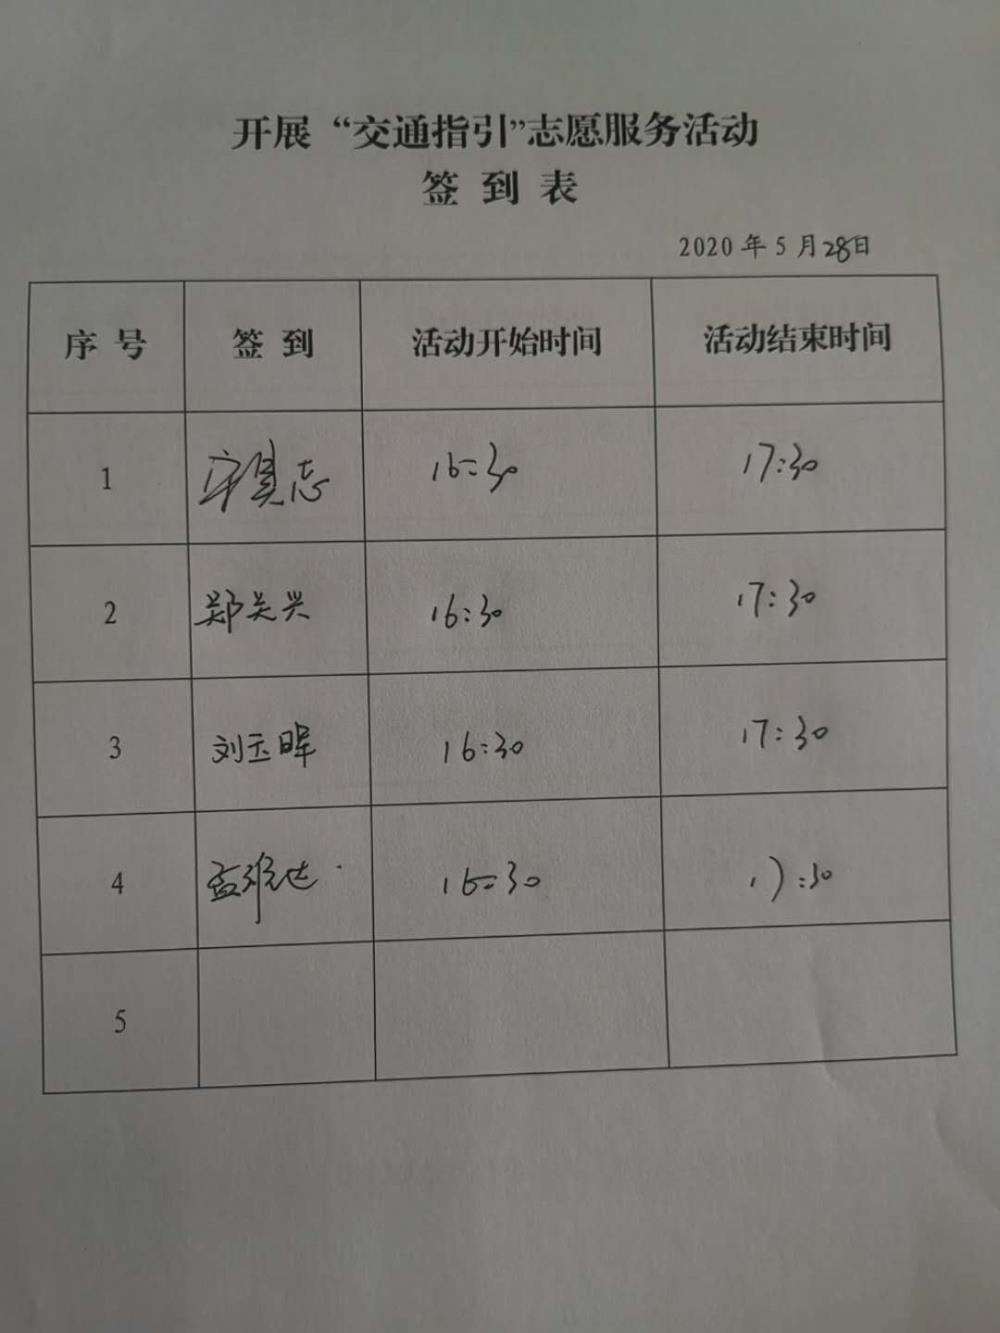 开展“交通指引”志愿服务活动
签到表
2020年5月28日
序号 签到 活动开始时间 活动结束时间
1 志 16:30 17:30
2 郑关兴 16:30 17:30
3 刘玉晖 16:30 17:30
4 孟 16:30 17:30
5